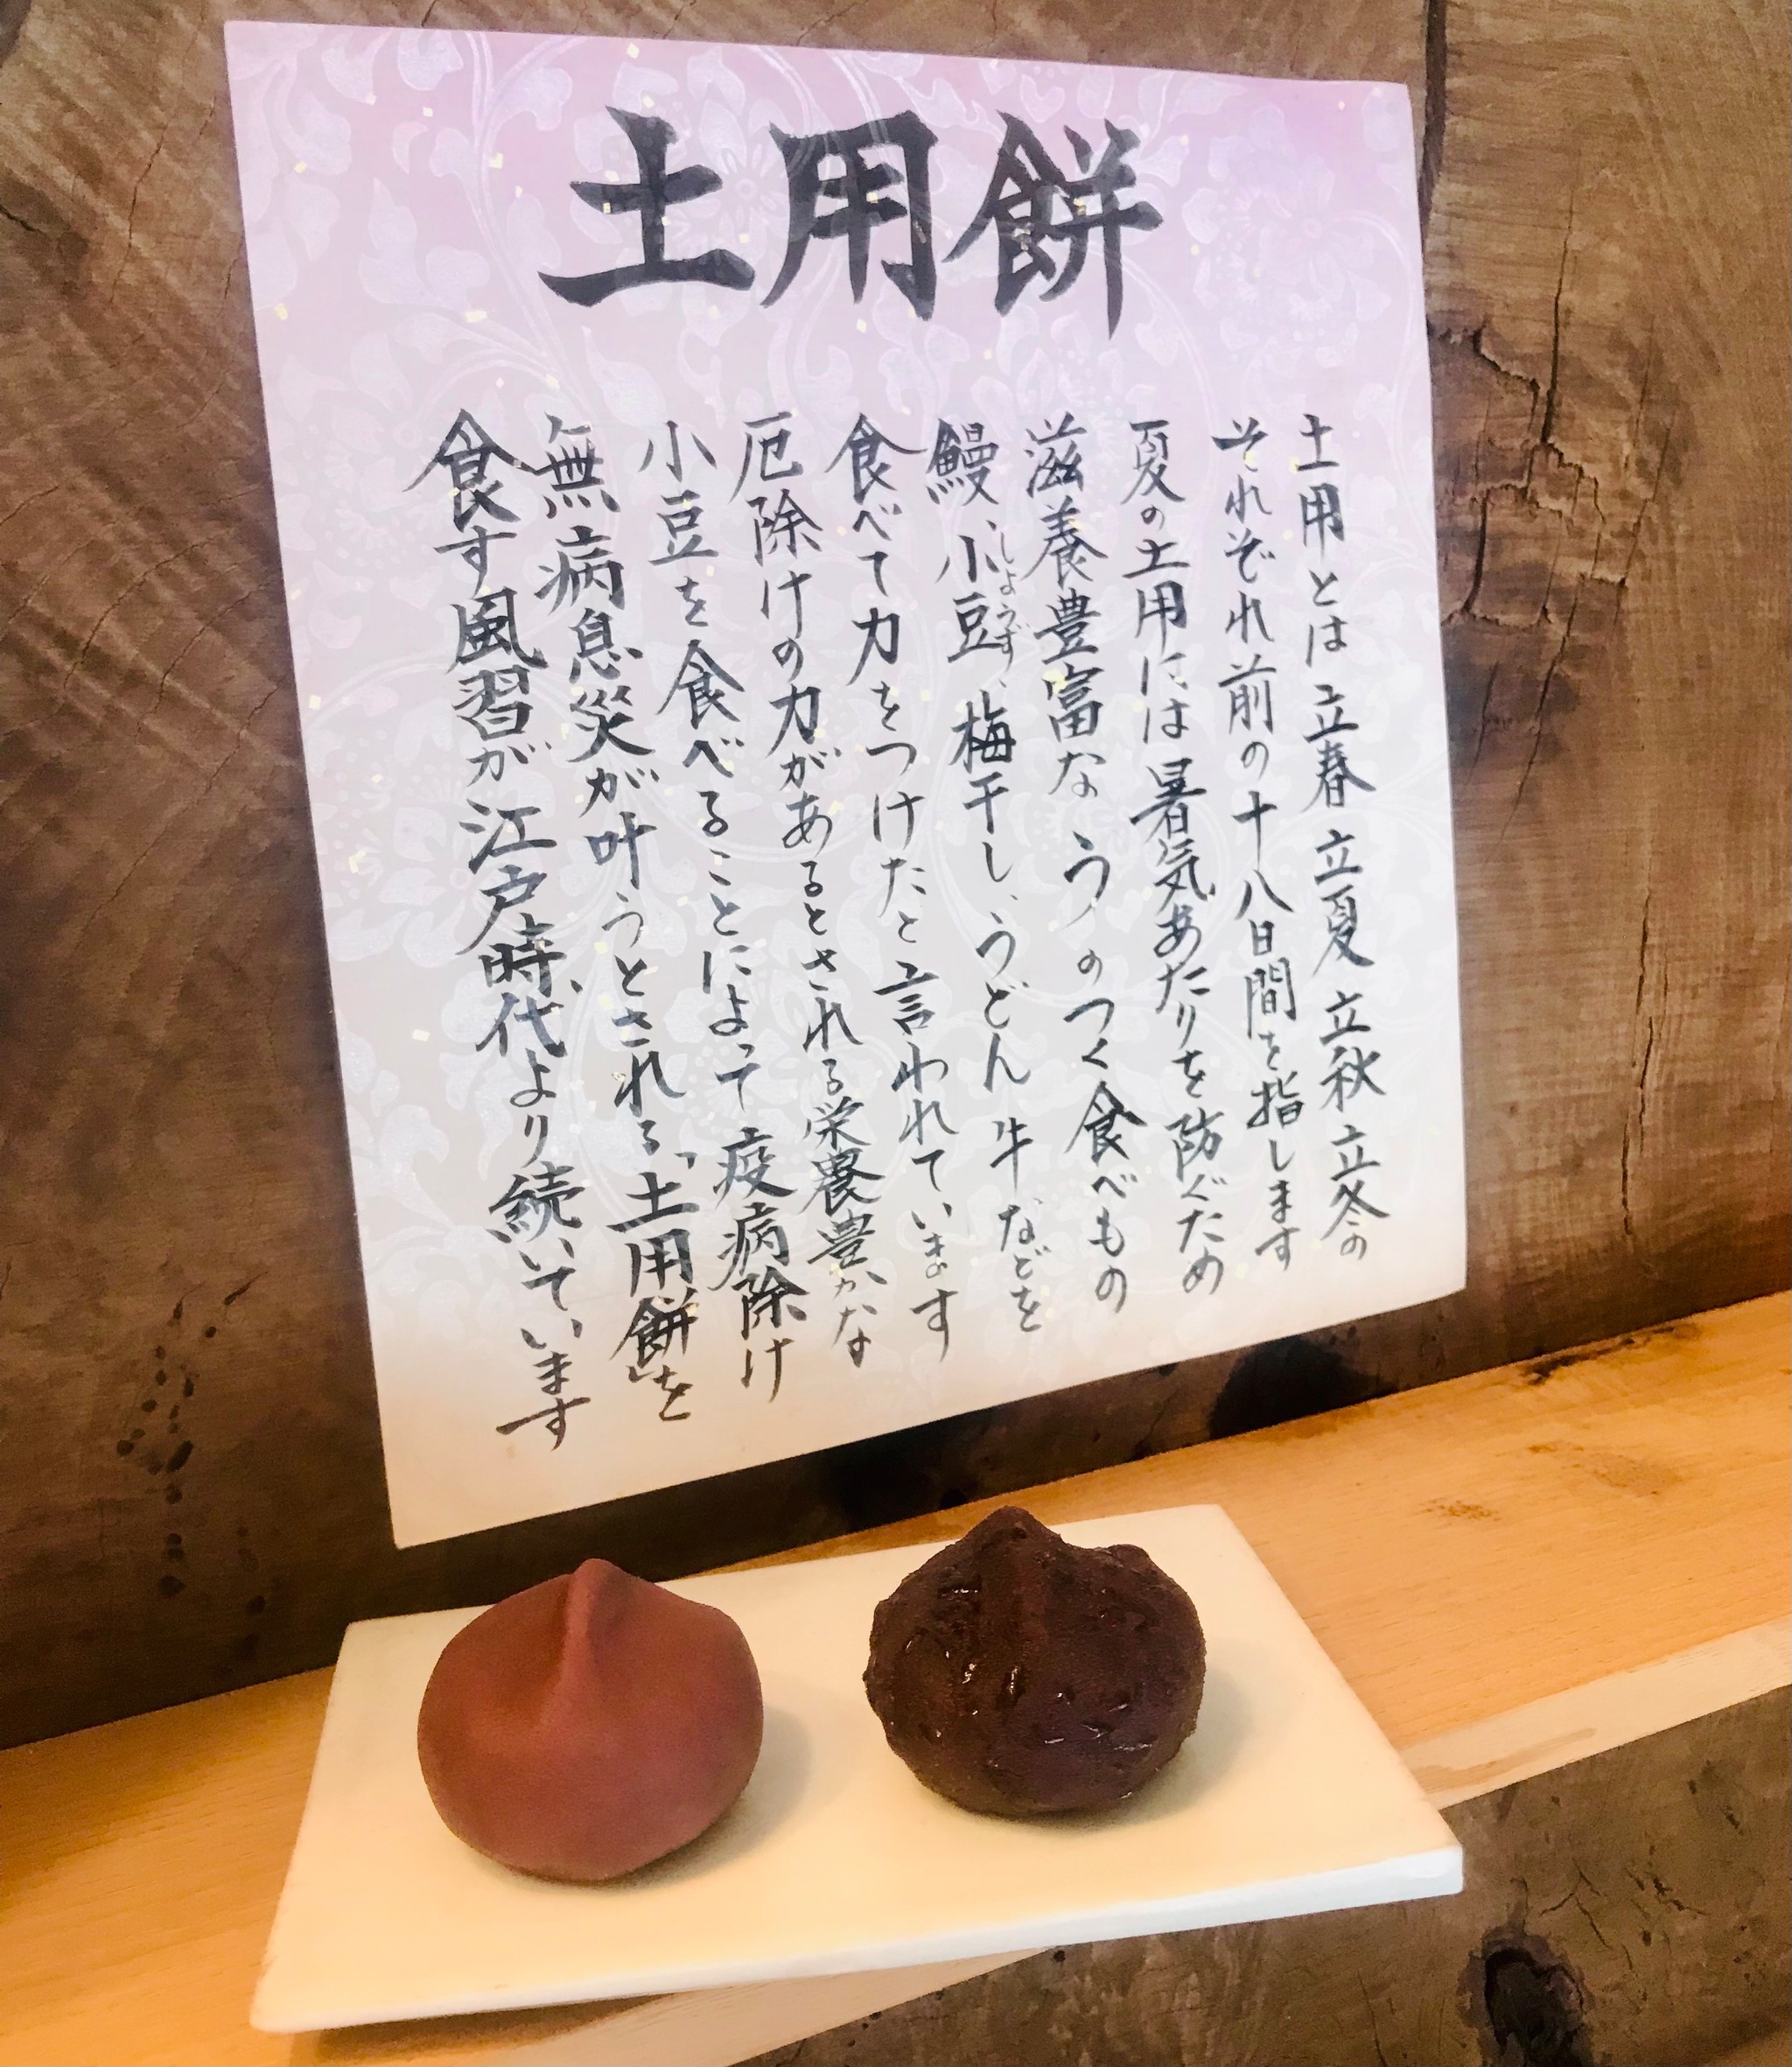 土用餅
土用とは立春 立夏 立秋 立冬の
それぞれ前の十八日間を指します
夏の土用には暑気あたりを防ぐため
滋養豊富な う のつく食べもの
鰻、小豆、梅干し、うどん 牛などを
しょうず
食べて力をつけたと言われています
厄除けの力があるとされる栄養豊かな
小豆を食べることによって疫病除け
無病息災が叶うとされる「土用餅」を
食す風習が江戸時代より続いています